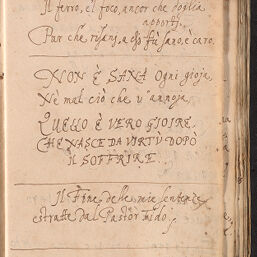 Il ferro, el foco, ancor che soglia
apportj.
Pur che risani, a
fù sano, è caro.
NON È SANA ogni gioja
Nè mal ciò che v'annoja
QUELLO È VERO GIOIRE,
CHE NASCE DA VIRTÙ DOPÒ
IL SOFFRIRE.
Il Fine delle mie sentenze
estratte dal Pastor fido